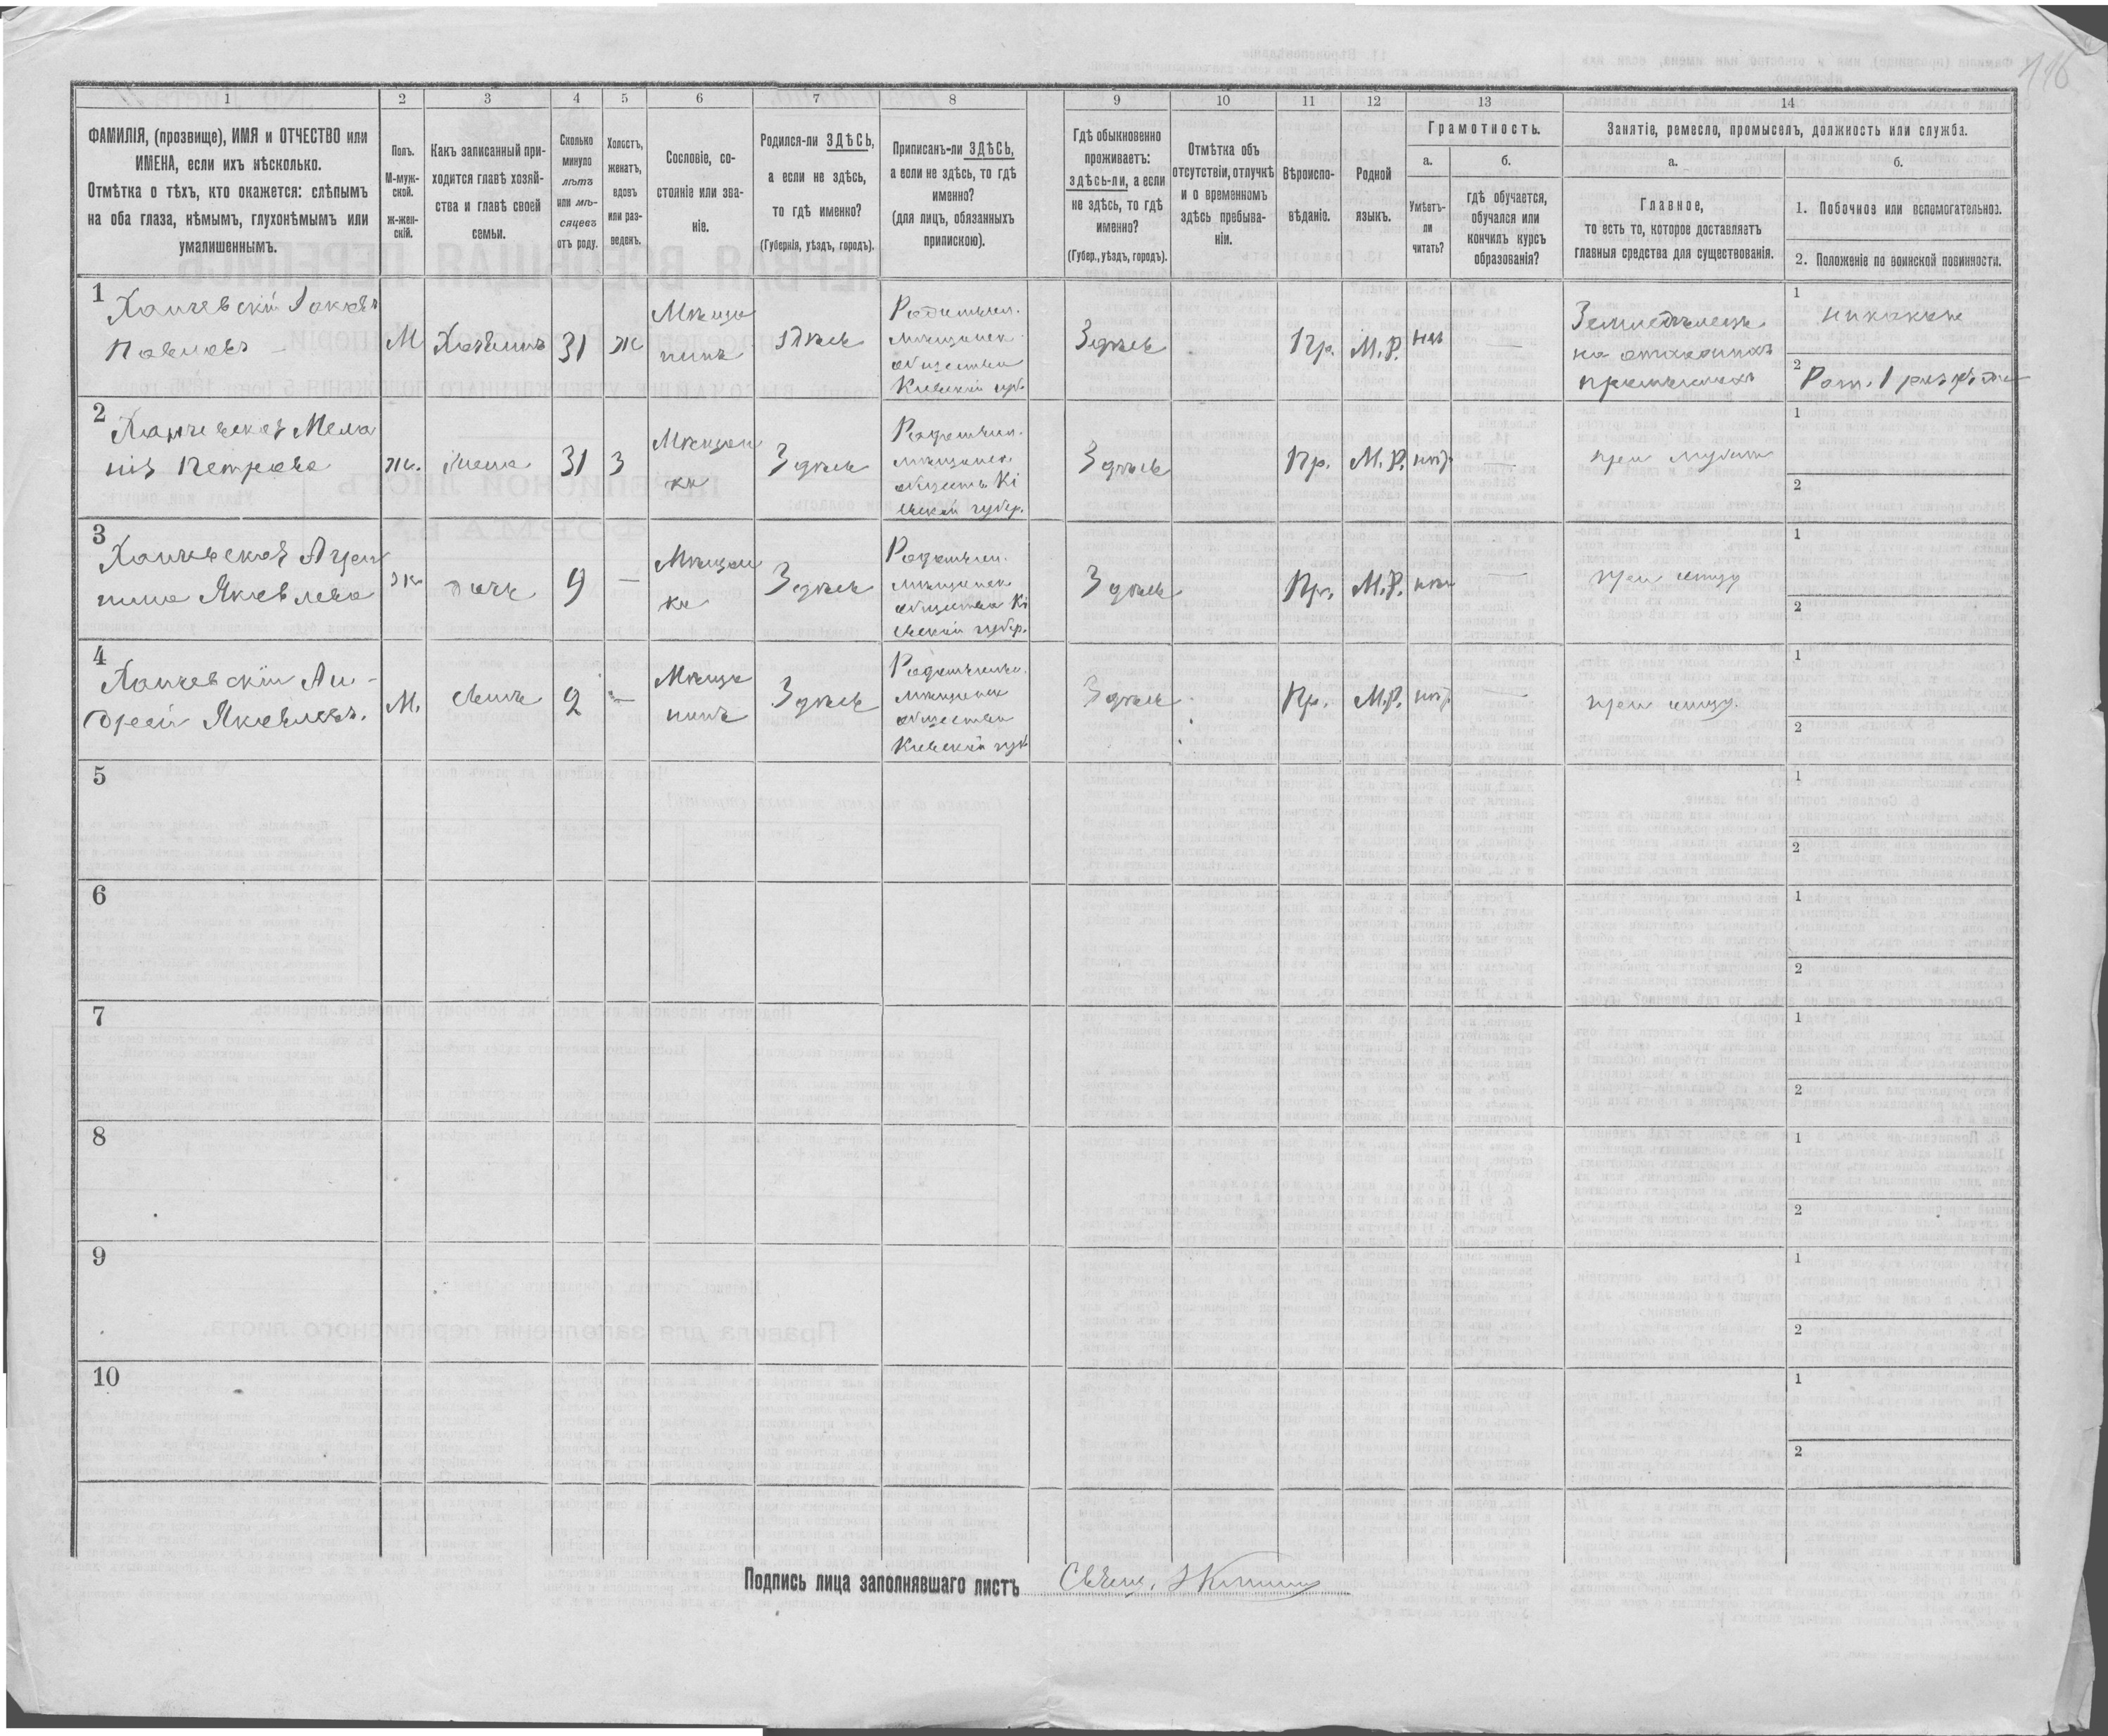 116
1 2 3 4 5 6 7 8 9 10 11 12 13 14
ФАМИЛІЯ, (прозвище), ИМЯ и ОТЧЕСТВО или
ИМЕНА, если ихъ нѣсколько.
Отмѣтка о тѣхъ, кто окажется: слѣпымъ
на оба глаза, нѣмымъ, глухонѣмымъ или
умалишеннымъ.
Полъ.
М-муж-
ской.
ж-жен-
скій.
Какъ записанный при-
ходится главѣ хозяй-
ства и главѣ своей
семьи.
Сколько
минуло
лѣтъ
или мѣ-
сяцевъ
отъ роду.
Холостъ,
женатъ,
вдовъ
или раз-
веденъ.
Сословіе, со-
стояніе или зва-
ніе.
Родился-ли ЗДѢСЬ,
а если не здѣсь,
то гдѣ именно?
(Губернія, уѣздъ, городъ).
Приписанъ-ли ЗДѢСЬ,
а если не здѣсь, то гдѣ
именно?
(для лицъ, обязанныхъ
припискою).
Гдѣ обыкновенно
проживаетъ:
здѣсь-ли, а если
не здѣсь, то гдѣ
именно?
(Губер., уѣздъ, городъ).
Отмѣтка объ
отсутствіи, отлучкѣ
и о временномъ
здѣсь пребыва-
ніи.
Вѣроиспо-
вѣданіе.
Родной
языкъ.
Грамотность.
а.
Умѣетъ-
ли
читать?
б.
гдѣ обучается,
обучался или
кончилъ курсъ
образованія?
Занятіе, ремесло, промыселъ, должность или служба.
а.
Главное,
то есть то, которое доставляетъ
главныя средства для существованія.
б.
1. Побочное или вспомогательное.
2. Положеніе по воинской повинности.
1
Ханчевскій Іаковъ
Павловъ
М
Хозяинъ
31
Ж
Мѣща
нинъ
Здѣсь
Радомысл.
мѣщанск
общества
Кіевской губ.
Здѣсь
Пр.
М.Р.
нѣт
—
Земледѣлецъ
на
1
никакихъ
2
Рат. 1 разряда
2
Ханчевская Мела
нія Петрова
Ж.
жена
31
З
Мѣщан
ка
Здѣсь
Радомысл.
мѣщанск.
обществ Кі
евской губер.
Здѣсь
Пр.
М.Р.
нѣт
—
при мужѣ
1
2
3
Ханчевская Агрип
пина Яковлева
Ж
дочь
9
—
Мѣщан
ка
Здѣсь
Радомысл.
мѣщанск
общества Кі
евской губер.
Здѣсь
Пр.
М.Р.
нѣт
—
при отцу
1
2
4
Ханчевскій Ан-
дрей Яковлевъ.
М.
сынъ
2
—
Мѣща
нинъ
Здѣсь
мѣщанск
общества
Кіевской губ
Здѣсь
Пр.
М.Р.
нѣт
—
при отцу.
1
2
5
1
2
6
1
2
7
1
2
8
1
2
9
1
2
10
1
2
Подпись лица заполнявшаго листъ